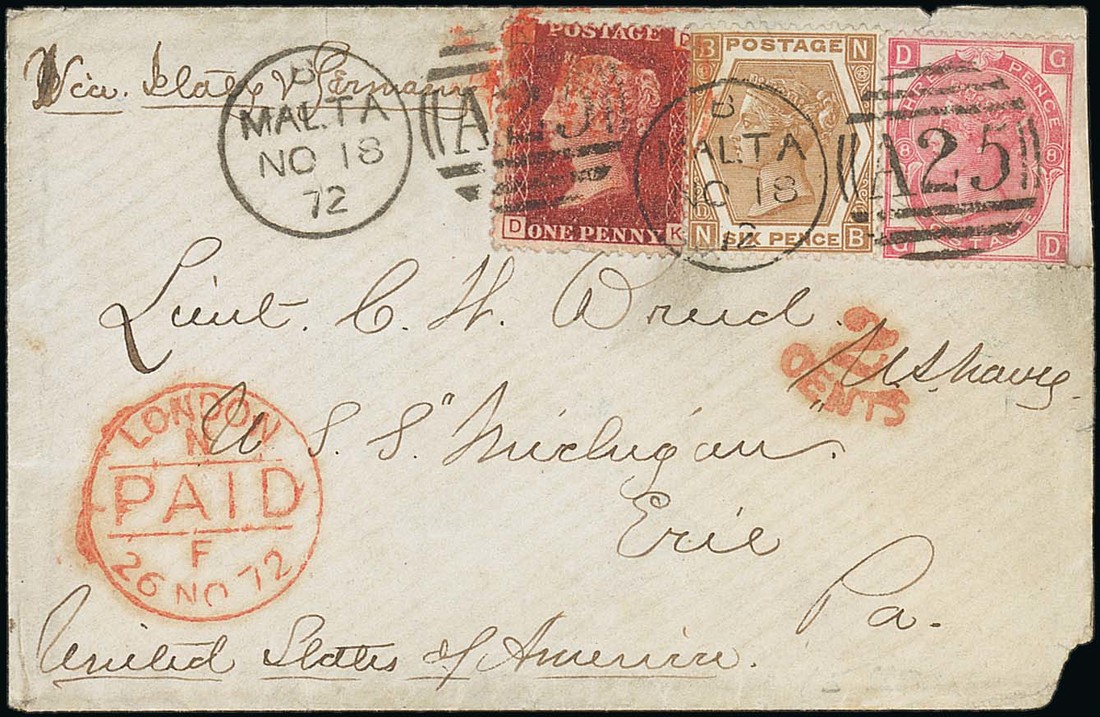 Via Italy & Germany
B
MALTA
NO 18
72
A25
B
MALTA
NO 18
72
A25
POSTAGE
D K
ONE PENNY
POSTAGE
B N
N B
SIX PENCE
D G
THREE PENCE
8 8
POSTAGE
G D
Lieut. C. H.
2
CENTS
U.S. Navy
U S S "Michigan"
Erie
Pa.
United States of America.
LONDON
N
PAID
F
26 NO 72